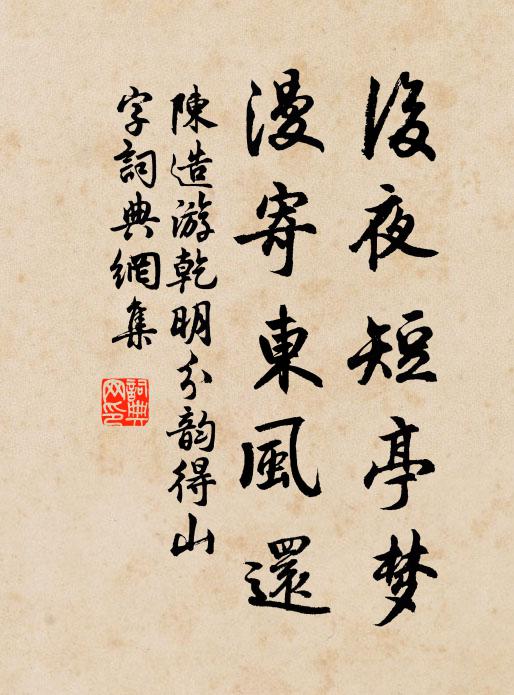 後夜短亭梦
漫寄東風還
陳造游乾明分韵得山
字詞典網集
詞典網印